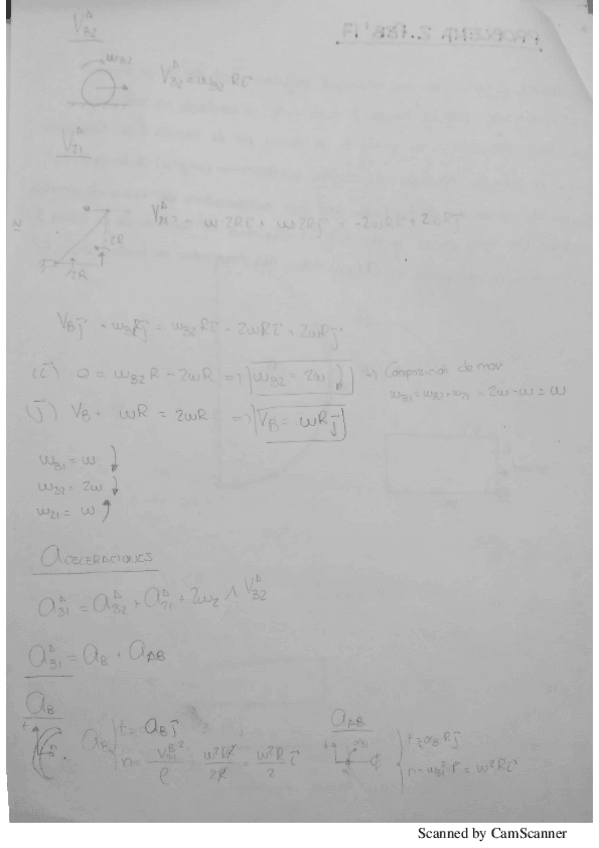 V^A_32
ω32
V^A_32 = ω32 R i
V^A_21
V^A_21 = - ω2R i + ω2R j = -2ωR i + 2ωR j
2R
2R
V_B j + ω31 R j = ω32 R i - 2ωR i + 2ωR j
(i) 0 = ω32 R - 2ωR => ω32 = 2ω => Composición de mov
ω31 = ω32 + ω21 = 2ω - ω = ω
(j) V_B + ωR = 2ωR => V_B = ωR j
ω31 = ω
ω32 = 2ω
ω21 = ω
ACELERACIONES
a^A_31 = a^A_32 + a^A_21 + 2ω2 ∧ V^A_32
a^A_31 = a_B + a_AB
a_B
a_B
t = a_B j
n = = ω²R/2 i
a_AB
n = ω31² R = ω²R i
Scanned by CamScanner